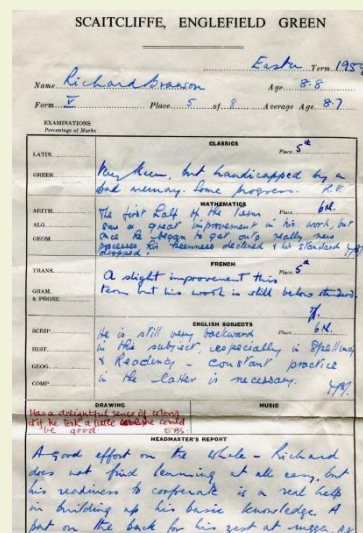 SCAITCLIFFE, ENGLEFIELD GREEN
Easter Term 195
Name Richard Branson Age 8·8
Form V Place 5 of 8 Average Age 8·7
EXAMINATIONS
Percentage of Marks
CLASSICS
LATIN Place 5th
GREEK Very keen, but handicapped by a
bad memory. Some progress.
MATHEMATICS
ARITH. The first half of the term Place 6th.
ALG. saw a great improvement in his work, but
GEOM. once he began to go onto really new
processes his keenness declined & his standard
dropped.
FRENCH
TRANS. Place 5th
A slight improvement this
GRAM. term but his work is still below standard
& PROSE
ENGLISH SUBJECTS
SCRIP. He is still very backward Place 6th.
HIST. in this subject, especially in Spelling
GEOG. & Reading – constant practice
COMP. in the latter is necessary.
DRAWING MUSIC
Has a delightful sense of
if he took a little care he could
be good
HEADMASTER'S REPORT
A good effort on the whole – Richard
does not find learning at all easy, but
his readiness to cooperate is a real help
in building up his basic knowledge. A
pat on the back for his zest at rugger.